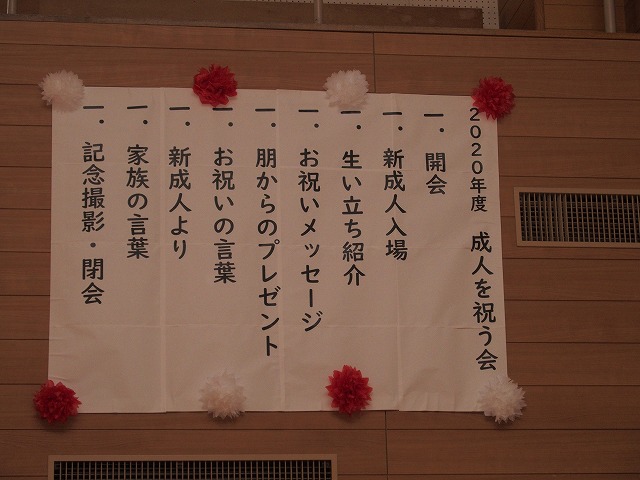 2020年度 成人を祝う会
一. 開会
一. 新成人入場
一. 生い立ち紹介
一. お祝いメッセージ
一. 朋からのプレゼント
一. お祝いの言葉
一. 新成人より
一. 家族の言葉
一. 記念撮影・閉会